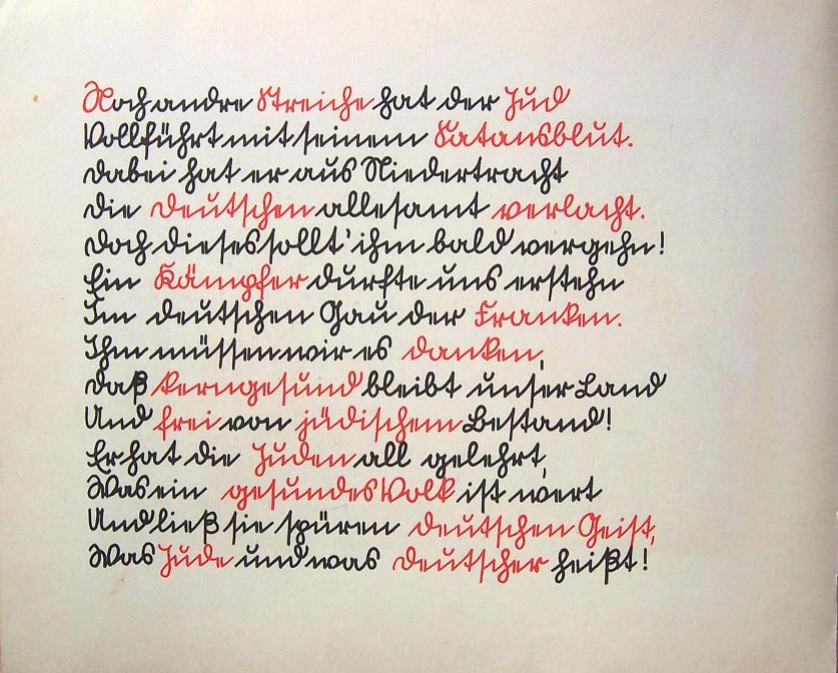 Noch andre Streiche hat der Jud
Vollführt mit seinem Satansblut.
Dabei hat er aus Niedertracht
Die Deutschen allesamt verlacht.
Doch dieses sollt' ihm bald vergehn!
Ein Kämpfer durfte uns erstehn
Im deutschen Gau der Franken.
Ihm müssen wir es danken,
Daß kerngesund bleibt unser Land
Und frei von jüdischem Bestand!
Er hat die Juden all gelehrt,
Was ein gesundes Volk ist wert
Und ließ sie spüren deutschen Geist,
Was Jude und was Deutscher heißt!